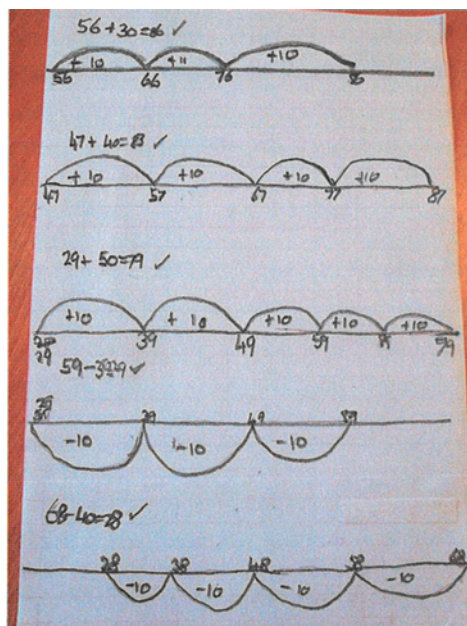 56 + 30 = 86 ✓
+ 10 +10
56 66 76 86
47 + 40 = ✓
+ 10 +10 +10 +10
47 57 67 87
29 + 50 = 79 ✓
+10 + 10 +10 +10 +10
29 39 49 59 79
59 - ✓
39 49 59
-10 -10 -10
68-40=28 ✓
28 38 48 58 68
-10 -10 -10 -10